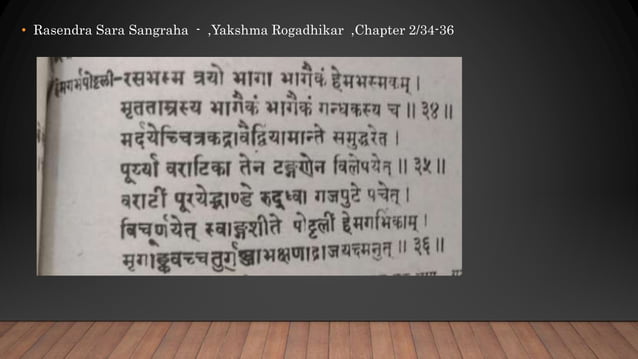 • Rasendra Sara Sangraha - ,Yakshma Rogadhikar ,Chapter 2/34-36
हेमगर्भपोट्टली-रसभस्म त्रयो भागा भागैकं हेमभस्मकम् ।
मृतताम्रस्य भागैकं भागैकं गन्धकस्य च ॥ ३४ ॥
मर्दयेच्चित्रकद्रावैर्द्वियामान्ते समुद्धरेत् ।
पूर्य्या वराटिका तेन टङ्कणेन विलेपयेत् ॥ ३५ ॥
वराटीं पूरयेद्भाण्डे रुद्ध्वा गजपुटे पचेत् ।
विचूर्णयेत् स्वाङ्गशीते पोट्टलीं हेमगर्भिकाम् ।
मृगाङ्कवच्चतुर्गुञ्जाभक्षणाद्राजयक्ष्मनुत् ॥ ३६ ॥